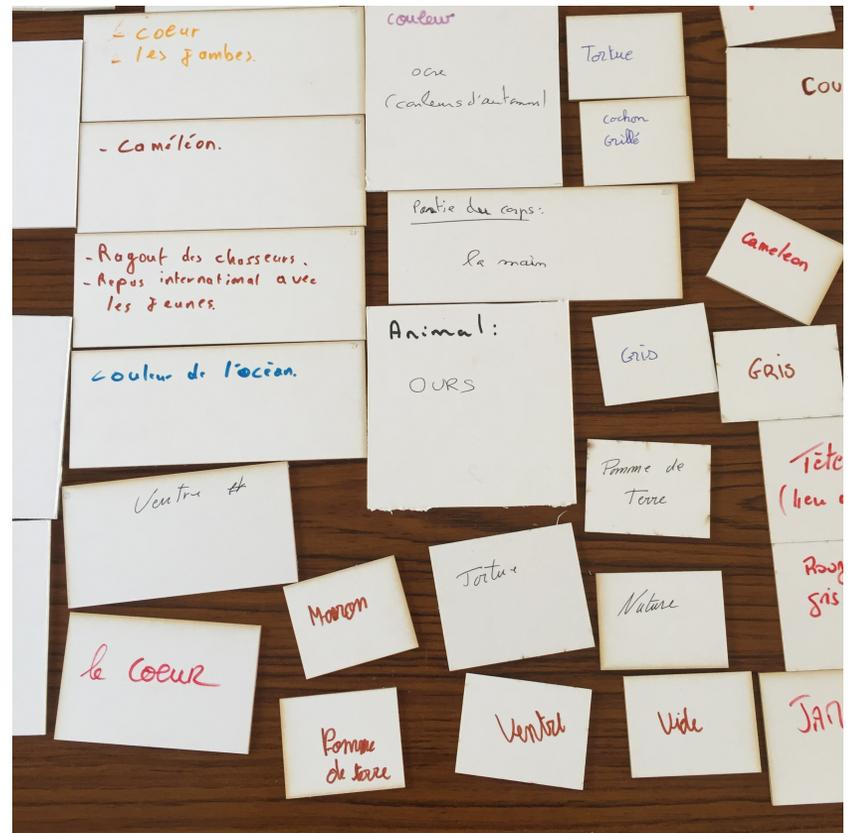 - coeur
- les jambes.
- Caméléon.
- Ragout des chasseurs.
- Repas international avec
les jeunes.
couleur de l'océan.
Ventre
le COEUR
couleur
ocre
(couleurs d'automne)
Partie du corps:
la main
Animal:
OURS
Tortue
cochon
Grillé
Cou
Cameleon
Gris
GRIS
Pomme de
Terre
Tête
(lieu
Roug
gris
Maron
Tortue
Nature
Pomme
de terre
Ventre
Vide
JAM